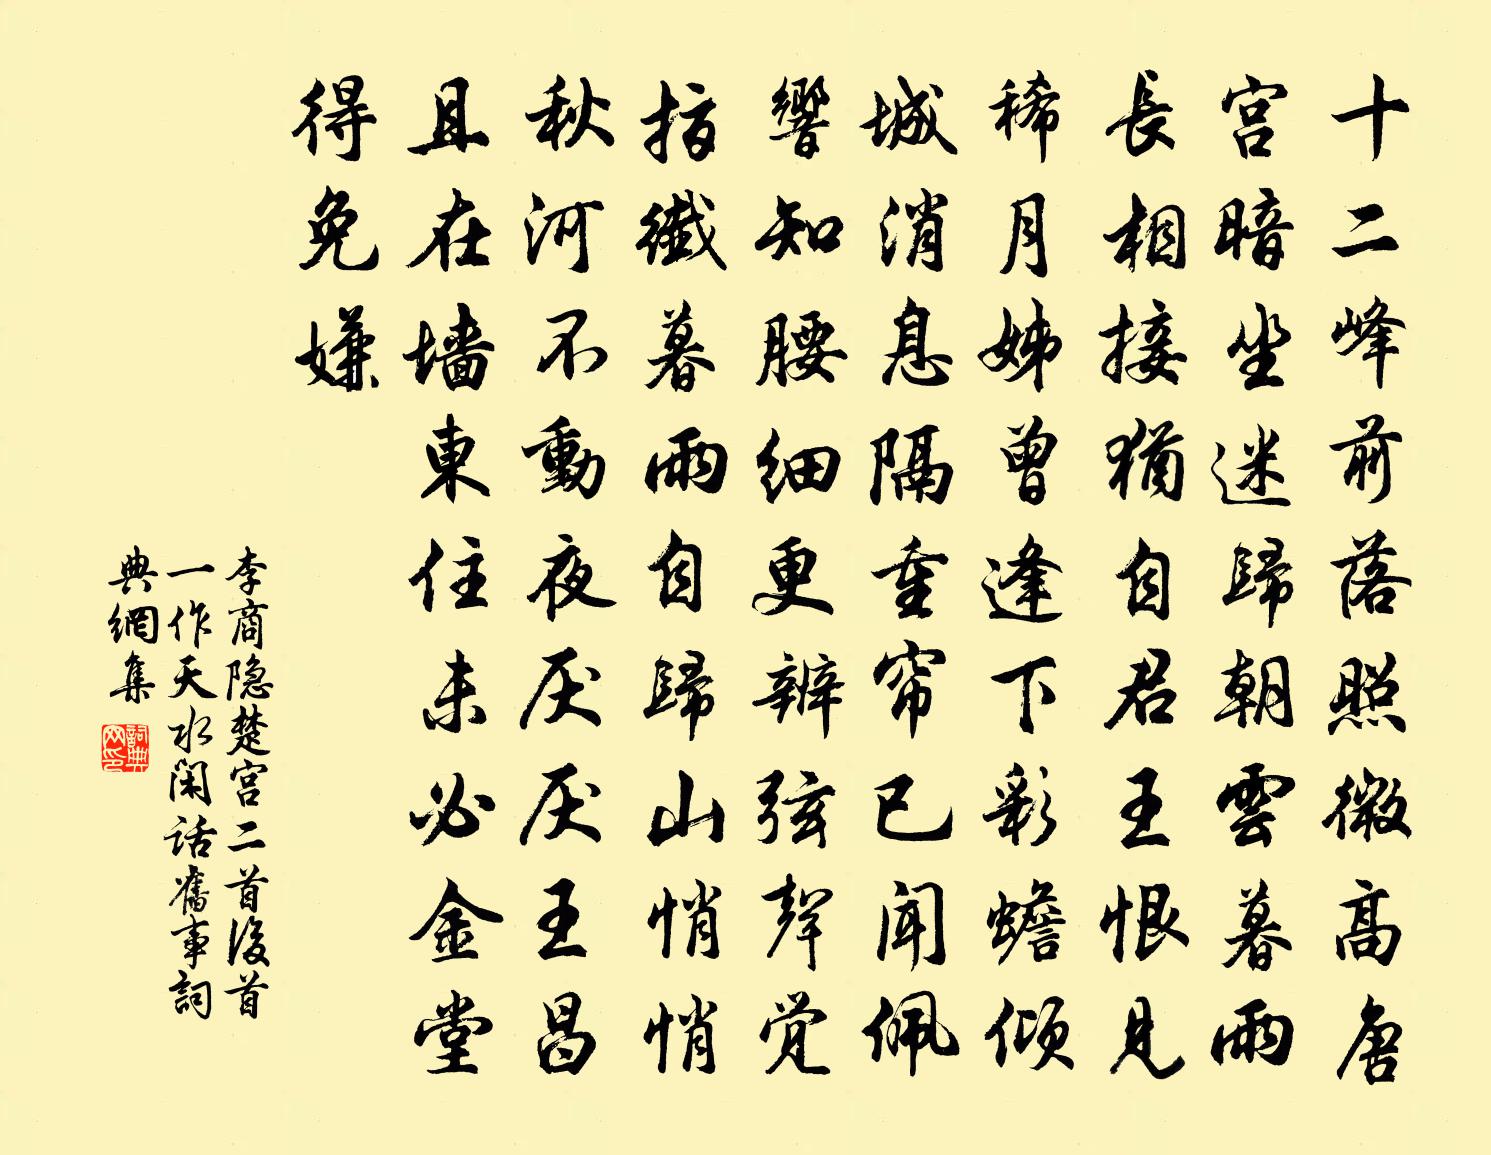 十二峰前落照微高唐
宫暗坐迷歸朝雲暮雨
長相接猶自君王恨見
稀月姊曾逢下彩蟾倾
城消息隔重帘已闻佩
響知腰细更辨弦聲觉
指纖暮雨自歸山悄悄
秋河不動夜厌厌王昌
且在墙東住未必金堂
得免嫌
李商隐楚宫二首後首
一作天水闲話舊事詞
典網集
詞典
网印